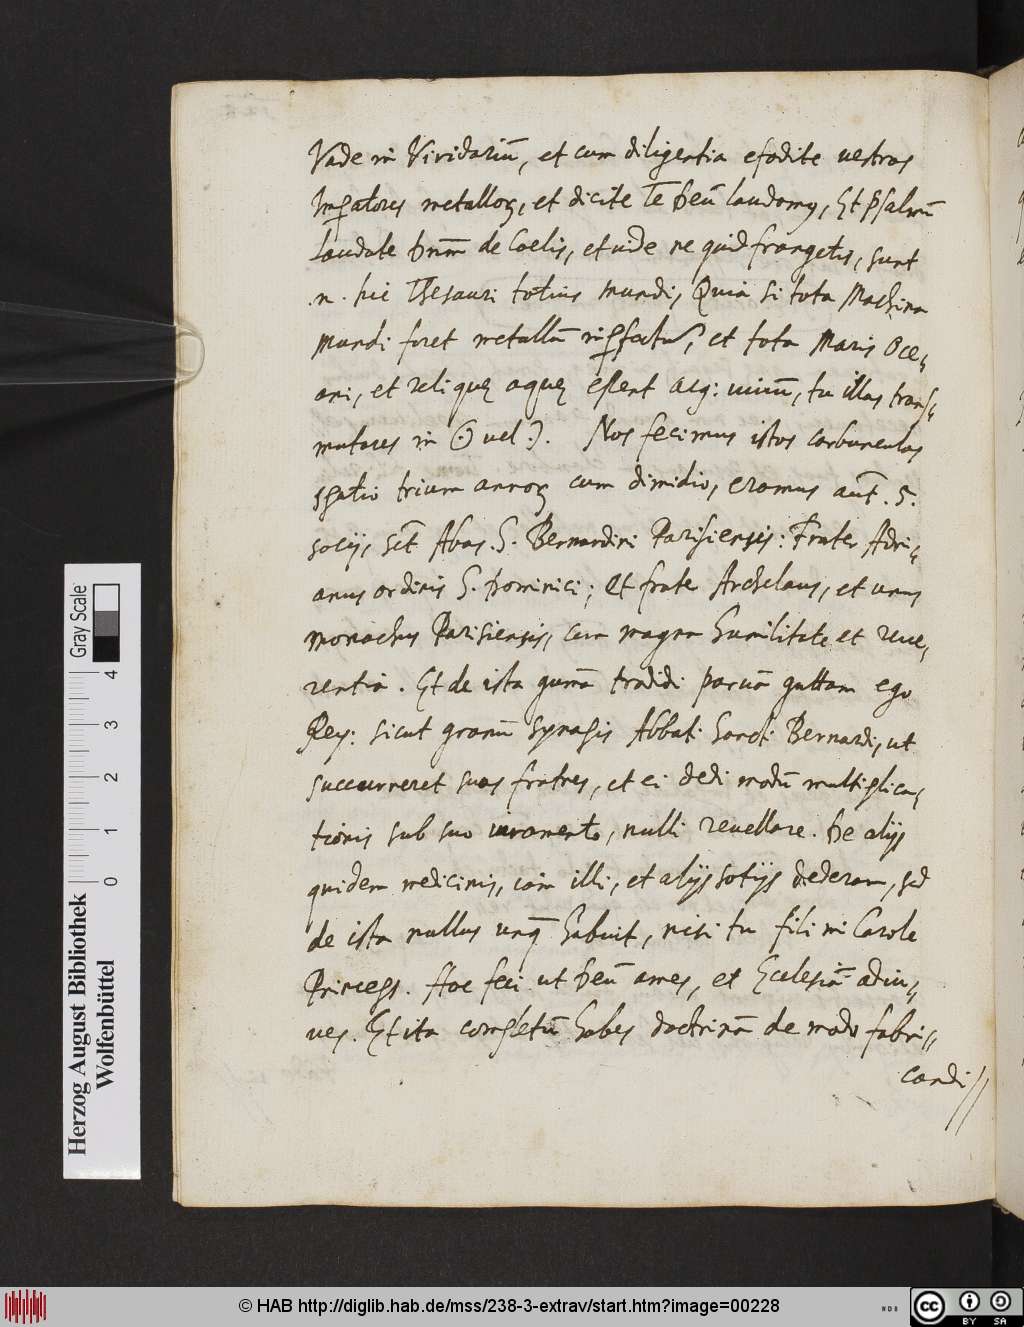 Vade in Viridariũ, et cum diligentia efodite vestros
Imꝑatores metalloꝝ, et dicite Te Deũ laudamꝰ, Et Psalmũ
Laudate Dnm̃ de Coelis, et vide ne quid frangetis, sunt
.n. hic Thesauri totius mundi, Quia si tota Machina
Mundi foret metallũ imꝑfectũ, et tota Maris Oce⸗
ani, et reliquę aquę essent arg: vivũ, tu illas trans⸗
mutares in ☉ vel ☽. Nos fecimus istos carbunculos
spatio trium annoꝝ cum dimidio, eramus aut̃ .5.
socij, sct̃ Abas. S. Bernardini Parisiensis: Frater Adri⸗
anus ordinis S. Dominici; et frate Archelaus, et unus
monachus Parisiensis, cum magna humilitate et reve⸗
rentia. Et de ista gumã tradidi parvã guttam ego
Rey: sicut granũ synapis Abbati Sancti Bernardi, ut
succurreret suos fratres, et ei dedi modũ multiplica⸗
tionis sub suo iuramento, nulli revellare. De alijs
quidem medicinis, iam illi, et alijs sotijs dederam, sed
de ista nullus unq̃ habuit, nisi tu fili mi Carole
Princeps. Hoc feci ut Deũ ames, et Ecclesiã adiu⸗
ves. Et ita completũ habes doctrinã de modo fabri⸗
candi//
Gray Scale
0 1 2 3 4
Herzog August Bibliothek
Wolfenbüttel
© HAB http://diglib.hab.de/mss/238-3-extrav/start.htm?image=00228
cc BY SA